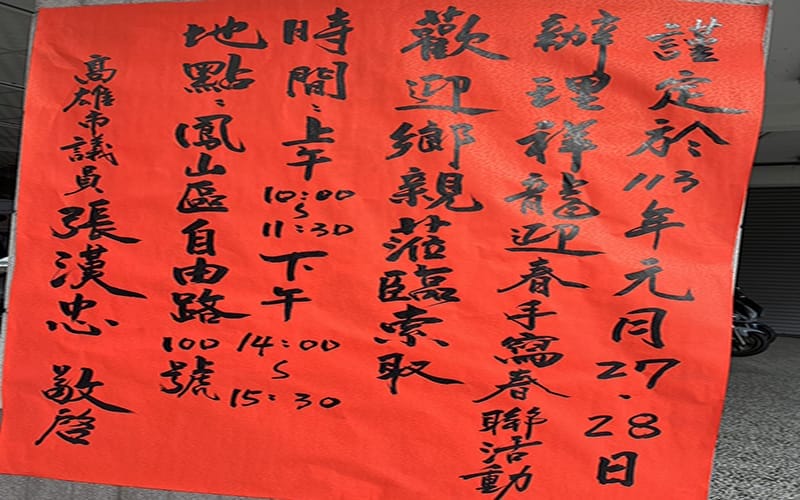 謹定於113年元月27.28日
辦理祥龍迎春手寫春聯活動
歡迎鄉親蒞臨索取
時間：上午10:00~11:30下午14:00~15:30
地點：鳳山區自由路100號
高雄市議員張漢忠 敬啓